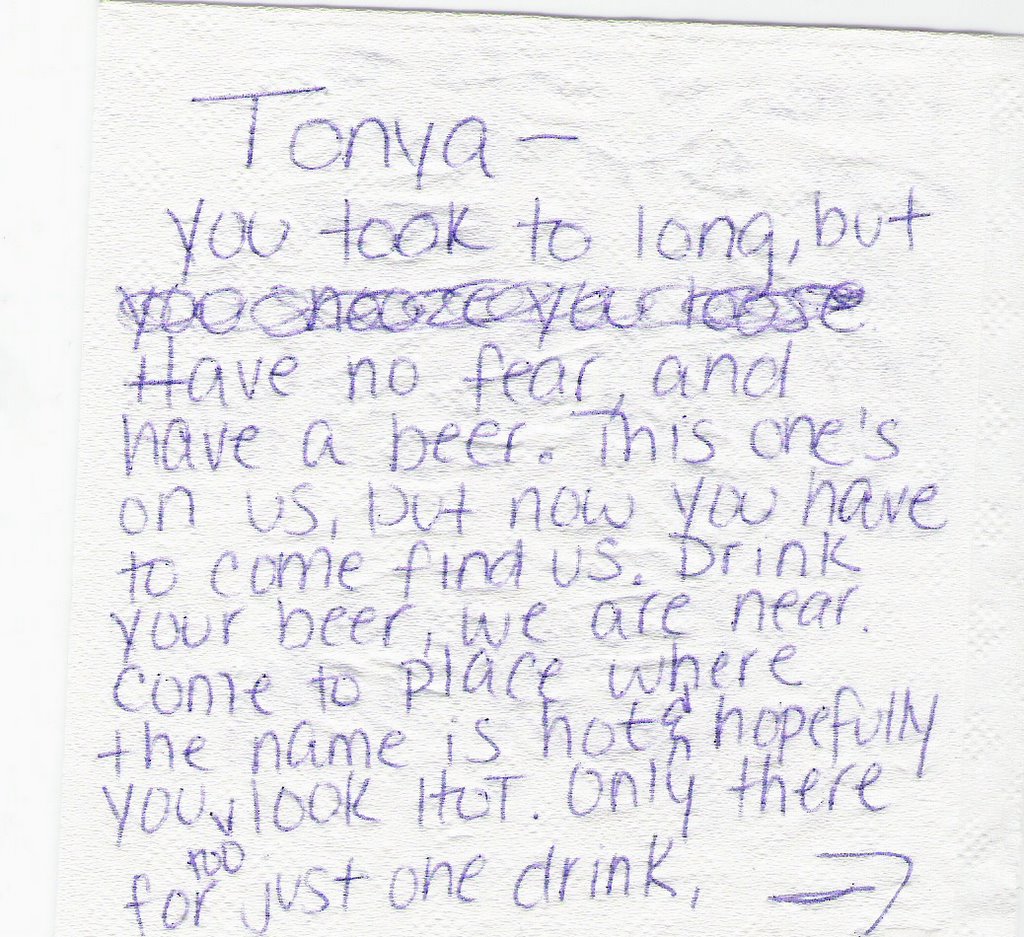 Tonya —
you took to long, but
you snooze you loose
Have no fear, and
have a beer. This one's
on us, but now you have
to come find us. Drink
your beer, we are near.
come to place where
the name is hot & hopefully
you look HOT. Only there
too
for just one drink,